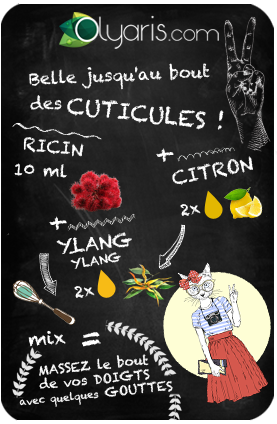 Olyaris.com
Belle jusqu'au bout
des CUTICULES !
RICIN
10 ml
+
CITRON
2x
+
YLANG
YLANG
2x
mix =
MASSEZ le bout
de vos DOIGTS
avec quelques GOUTTES